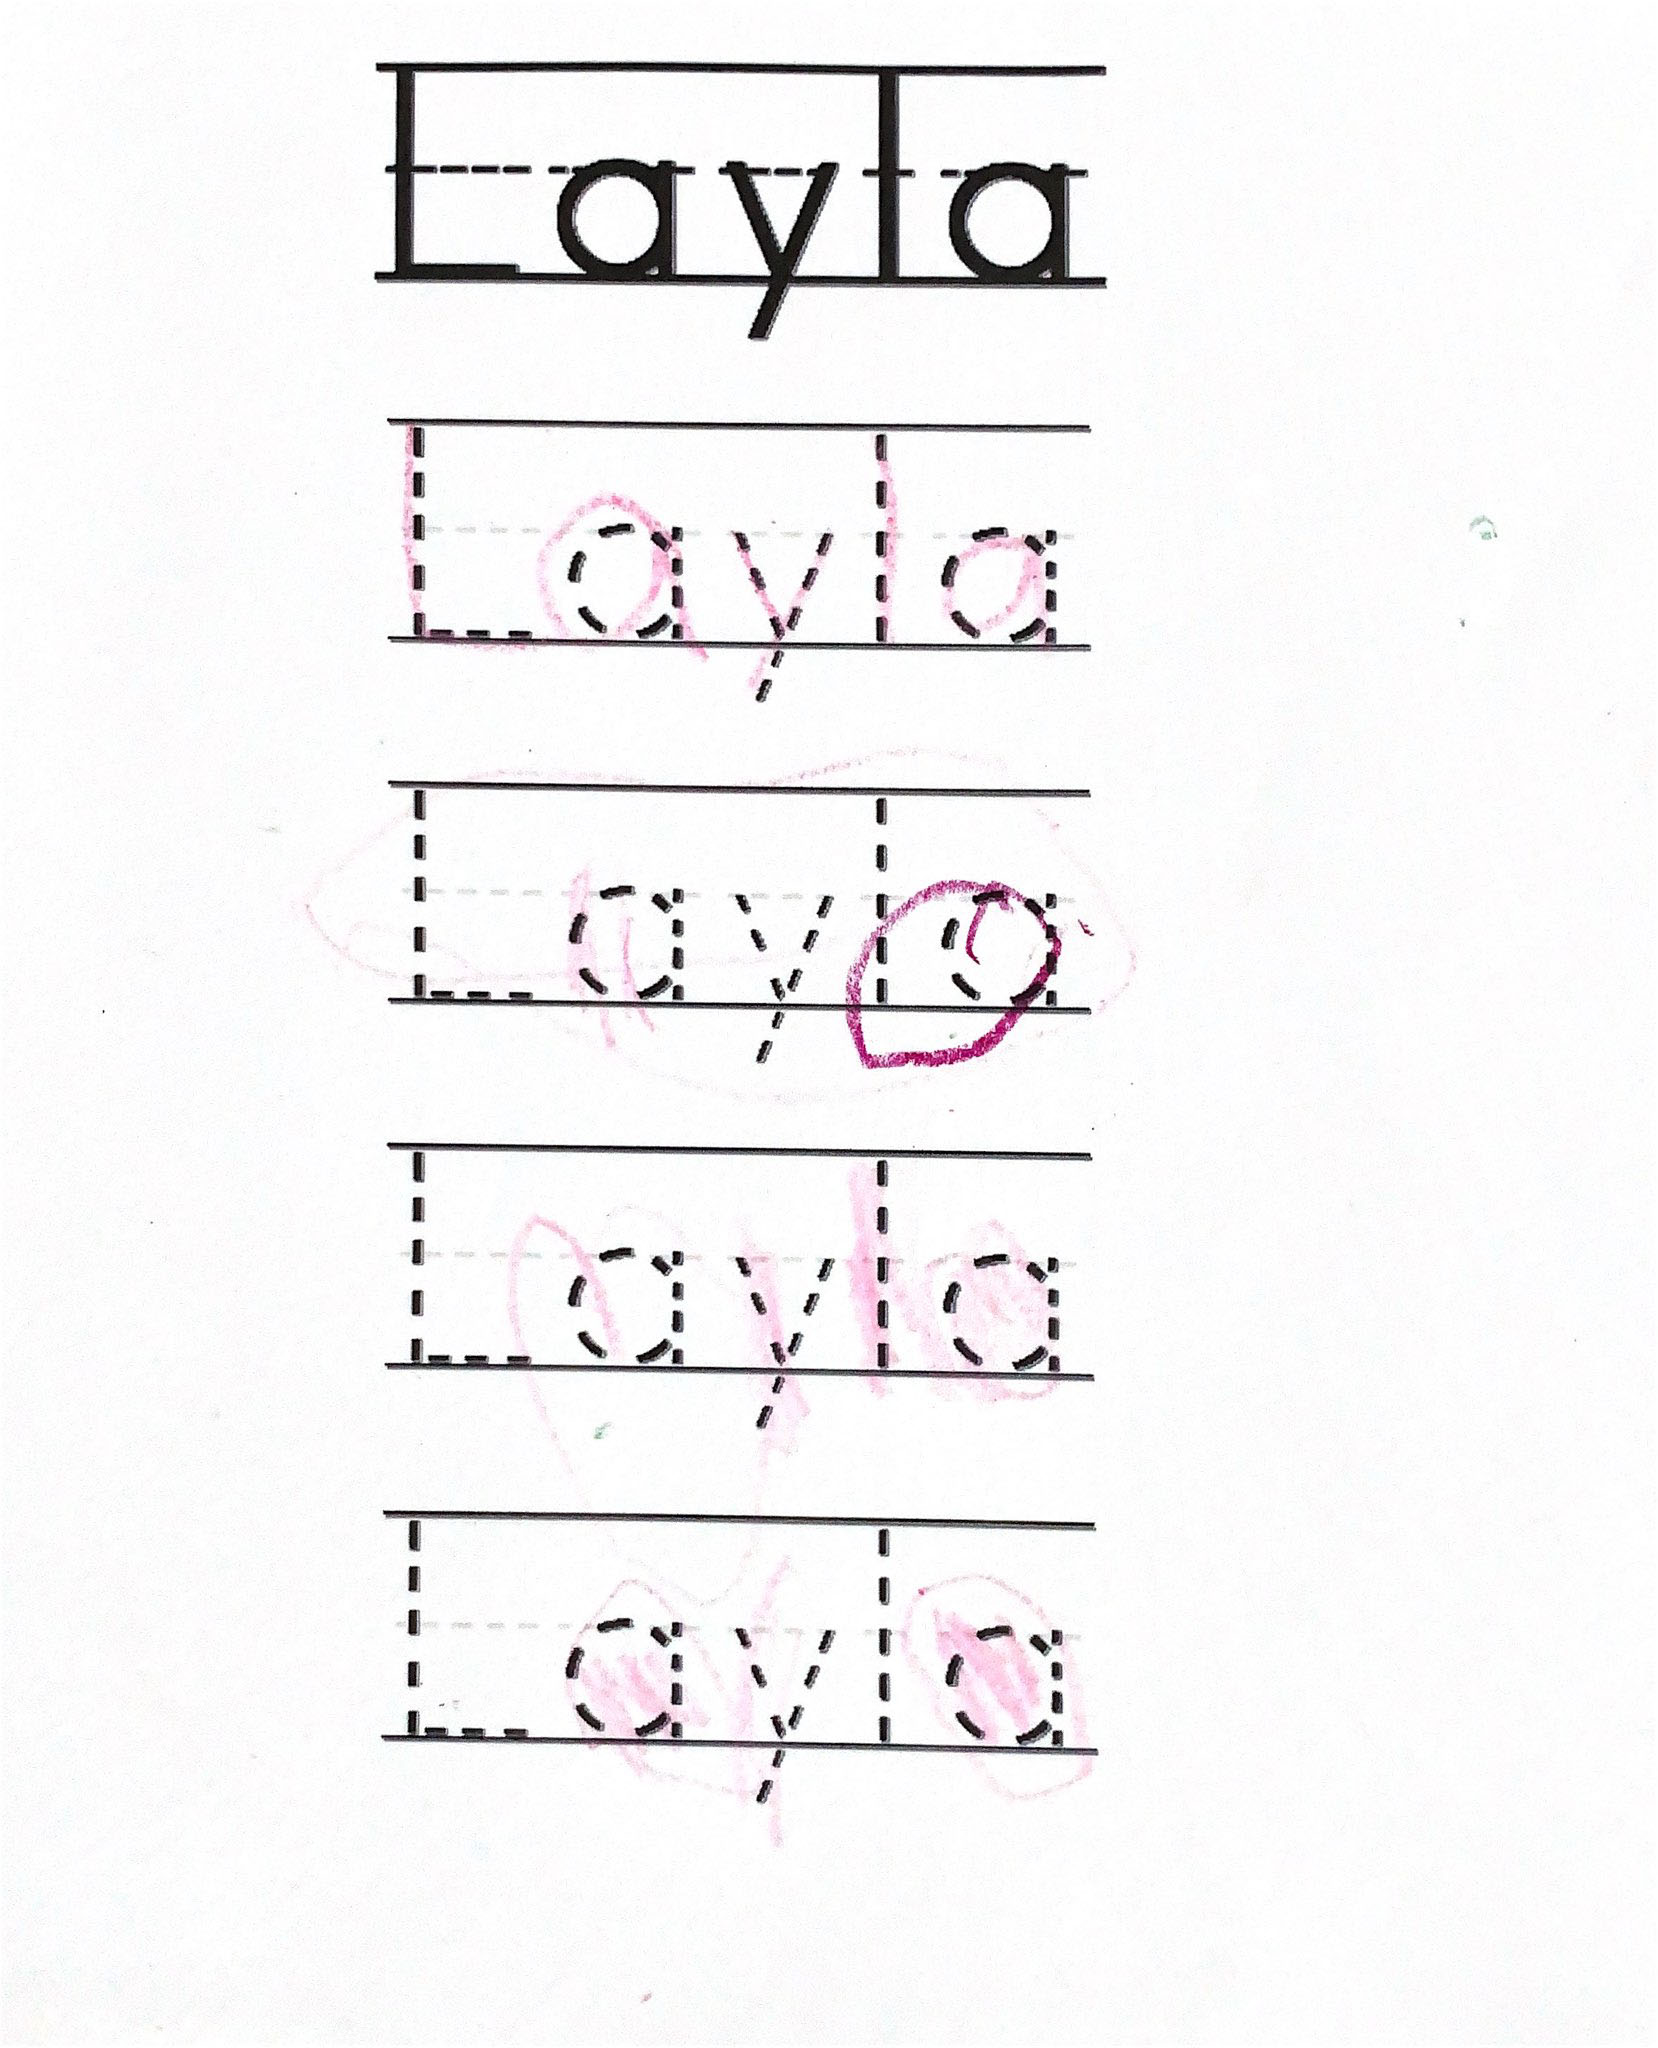 Layla
Layla
Layla
Layla
Layla